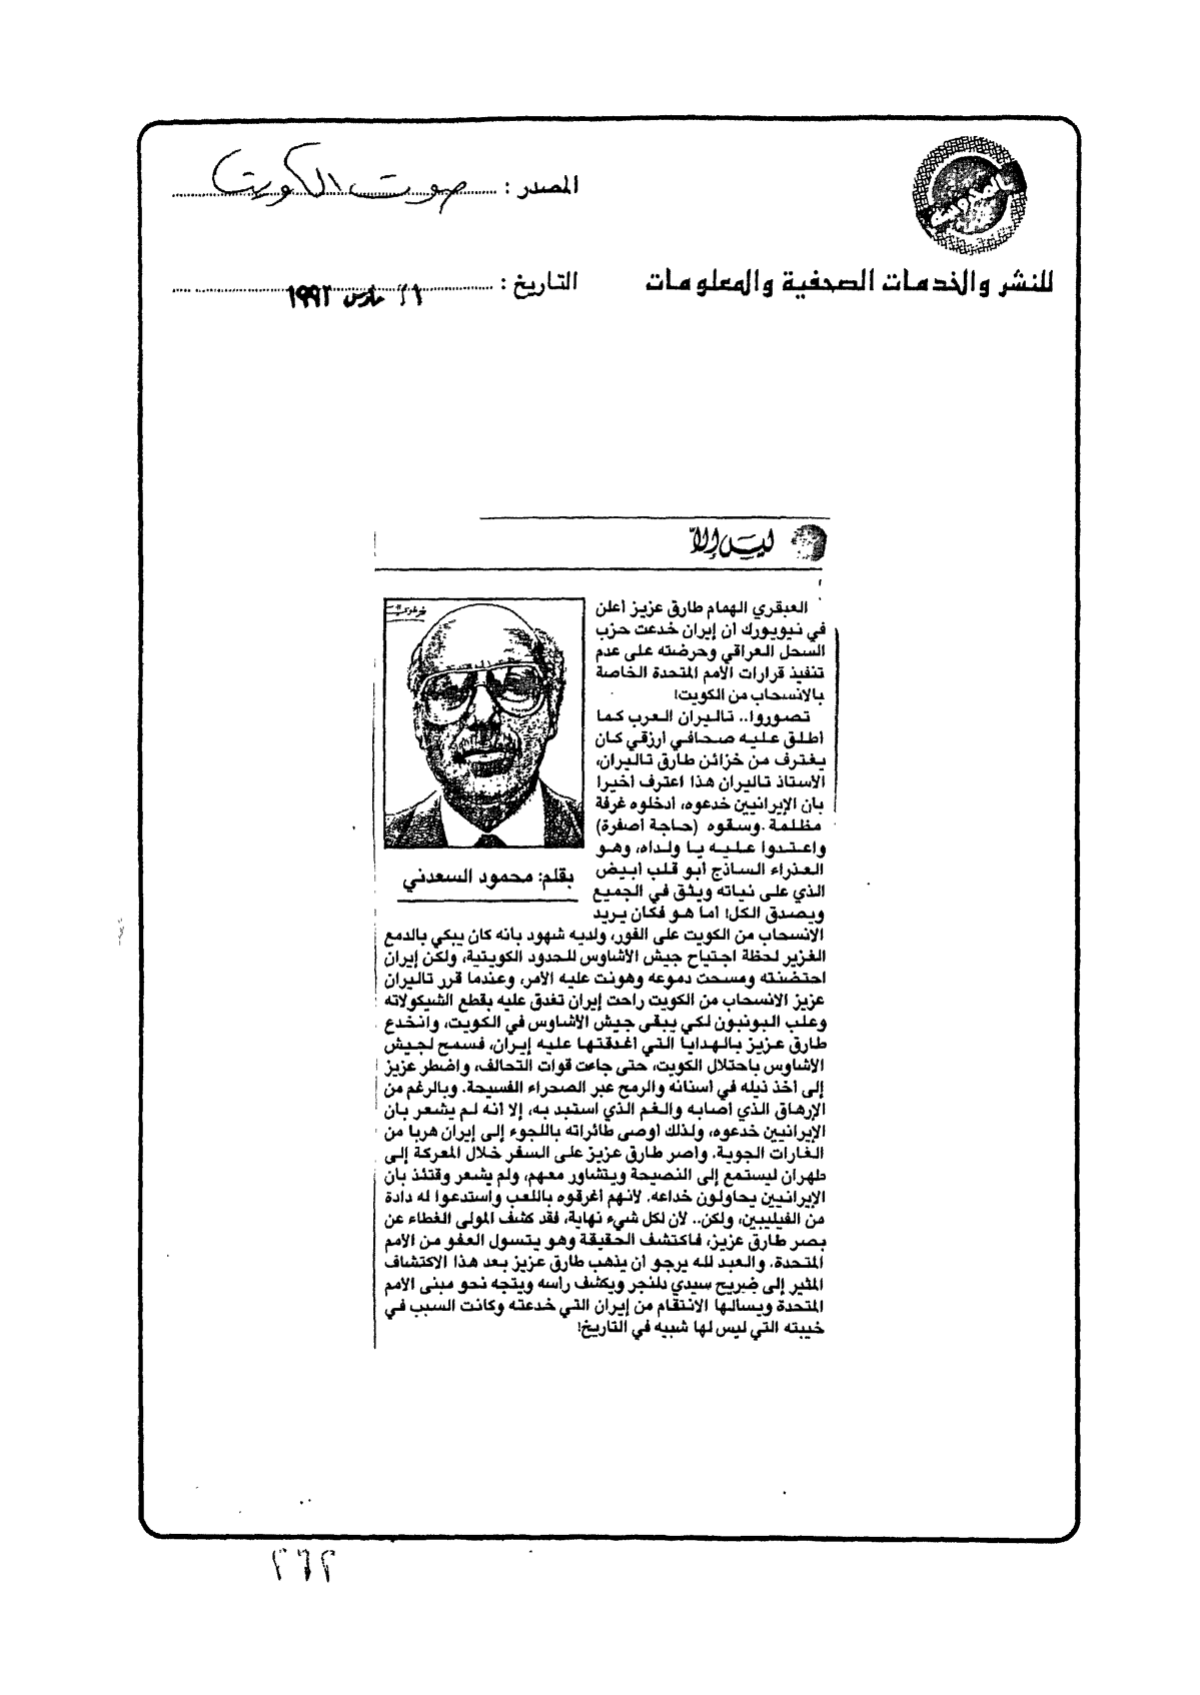 المصدر : صوت الكويت
للنشر والخدمات الصحفية والمعلومات
التاريخ : ٢٦ مارس ١٩٩٢
ليس إلاّ
العبقري الهمام طارق عزيز أعلن
في نيويورك أن إيران خدعت حزب
السحل العراقي وحرضته على عدم
تنفيذ قرارات الأمم المتحدة الخاصة
بالانسحاب من الكويت!
تصوروا.. تاليران العرب كما
أطلق عليه صحافي أرزقي كان
يغترف من خزائن طارق تاليران،
الأستاذ تاليران هذا اعترف أخيرا
بأن الإيرانيين خدعوه، أدخلوه غرفة
مظلمة .وسقوه (حاجة أصفرة)
واعتدوا عليه يا ولداه، وهو
العذراء الساذج أبو قلب أبيض
الذي على نياته ويثق في الجميع
ويصدق الكل! أما هو فكان يريد
بقلم: محمود السعدني
الانسحاب من الكويت على الفور، ولديه شهود بأنه كان يبكي بالدمع
الغزير لحظة اجتياح جيش الأشاوس للحدود الكويتية، ولكن إيران
احتضنته ومسحت دموعه وهونت عليه الأمر، وعندما قرر تاليران
عزيز الانسحاب من الكويت راحت إيران تغدق عليه بقطع الشيكولاته
وعلب البونبون لكي يبقى جيش الأشاوس في الكويت، وانخدع
طارق عزيز بالهدايا التي أغدقتها عليه إيران، فسمح لجيش
الأشاوس باحتلال الكويت، حتى جاءت قوات التحالف، واضطر عزيز
إلى أخذ ذيله في أسنانه والرمح عبر الصحراء الفسيحة. وبالرغم من
الإرهاق الذي أصابه والغم الذي استبد به، إلا أنه لم يشعر بأن
الإيرانيين خدعوه، ولذلك أوصى طائراته باللجوء إلى إيران هربا من
الغارات الجوية. وأصر طارق عزيز على السفر خلال المعركة إلى
طهران ليستمع إلى النصيحة ويتشاور معهم، ولم يشعر وقتئذ بأن
الإيرانيين يحاولون خداعه. لأنهم أغرقوه باللعب واستدعوا له دادة
من الفيليبين، ولكن.. لأن لكل شيء نهاية، فقد كشف المولى الغطاء عن
بصر طارق عزيز، فاكتشف الحقيقة وهو يتسول العفو من الأمم
المتحدة. والعبد لله يرجو أن يذهب طارق عزيز بعد هذا الاكتشاف
المثير إلى ضريح سيدي بلنجر ويكشف رأسه ويتجه نحو مبنى الأمم
المتحدة ويسألها الانتقام من إيران التي خدعته وكانت السبب في
خيبته التي ليس لها شبيه في التاريخ!